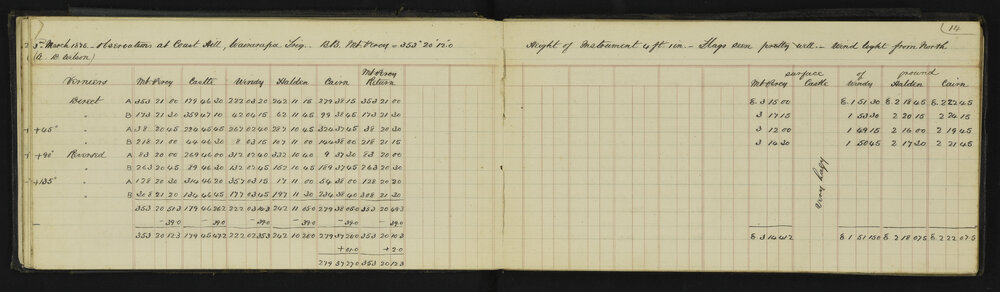 14
3rd March 1876 - Observations at Coast Hill, Wairarapa Trig. B.B. Mt. Percy = 353° 20' 12".0 Height of Instrument 4 ft 1 in. - Flags seen pretty well - Wind light from North
(A. W. Wilson)
surface of ground
Verniers Mt Percy Castle Windy Halden Cairn Mt Percy Return Mt Percy Castle Windy Halden Cairn
Direct A 353 21 00 179 46 30 222 03 20 242 11 15 279 38 15 353 21 00 E. 3 15 00 E. 1 51 30 E 2 18 45 E. 2 22 45
" B 173 21 30 359 47 10 42 04 15 62 11 45 99 38 45 173 21 30 3 17 15 1 53 30 2 20 15 2 24 15
+45° " A 38 20 45 224 45 45 267 02 40 287 10 45 324 37 45 38 20 30 3 12 00 1 49 15 2 16 00 2 19 45
" B 218 21 00 44 46 30 8 03 15 107 11 00 144 38 00 218 21 15 3 14 30 1 50 45 2 17 30 2 21 45
+90° Reversed A 83 20 00 269 46 00 312 12 40 332 10 40 9 37 30 83 20 00
" B 263 20 45 89 46 30 132 02 45 152 10 45 189 37 45 263 20 30
+135° " A 128 20 30 314 46 20 357 03 15 17 11 00 54 38 00 128 20 20
" B 308 21 20 134 46 45 177 03 45 197 11 30 234 38 40 308 21 30
very hazy
353 20 51.3 179 46 26.2 222 03 14.3 242 11 05.0 279 38 05.0 353 20 49.3
- 39.0 - 39.0 - 39.0 - 39.0 - 39.0 - 39.0
353 20 12.3 179 45 47.2 222 02 35.3 242 10 26.0 279 37 26.0 353 20 10.3 E 3 14 41.2 E 1 51 15.0 E 2 18 07.5 E 2 22 07.5
+ 01.0 + 2.0
279 37 27.0 353 20 12.3